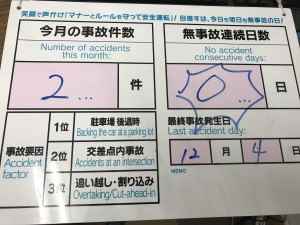 笑顔で声付け「マナーとルールを守って安全運転」/ 目指すは、今日も明日も無事故の日!
今月の事故件数
Number of accidents
this month:
2... 件
無事故連続日数
No accident
consecutive days:
0... 日
事故要因
Accident
factor
1位 駐車場 後退時
Backing the car at a parking lot
2位 交差点内事故
Accidents at an intersection
3位 追い越し・割り込み
Overtaking/Cut-ahead-in
最終事故発生日
Last accident day:
12 月 4 日
MEMO